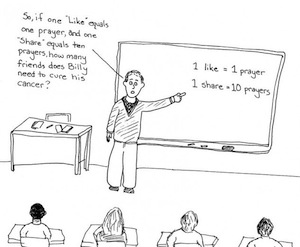 So, if one "Like" equals
one prayer, and one
"Share" equals ten
prayers, how many
friends does Billy
need to cure his
cancer?
1 like = 1 prayer
1 share = 10 prayers